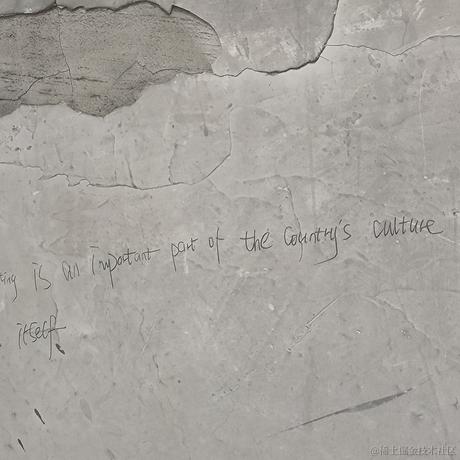 is an important part of the country's culture
itself
@稀土掘金技术社区